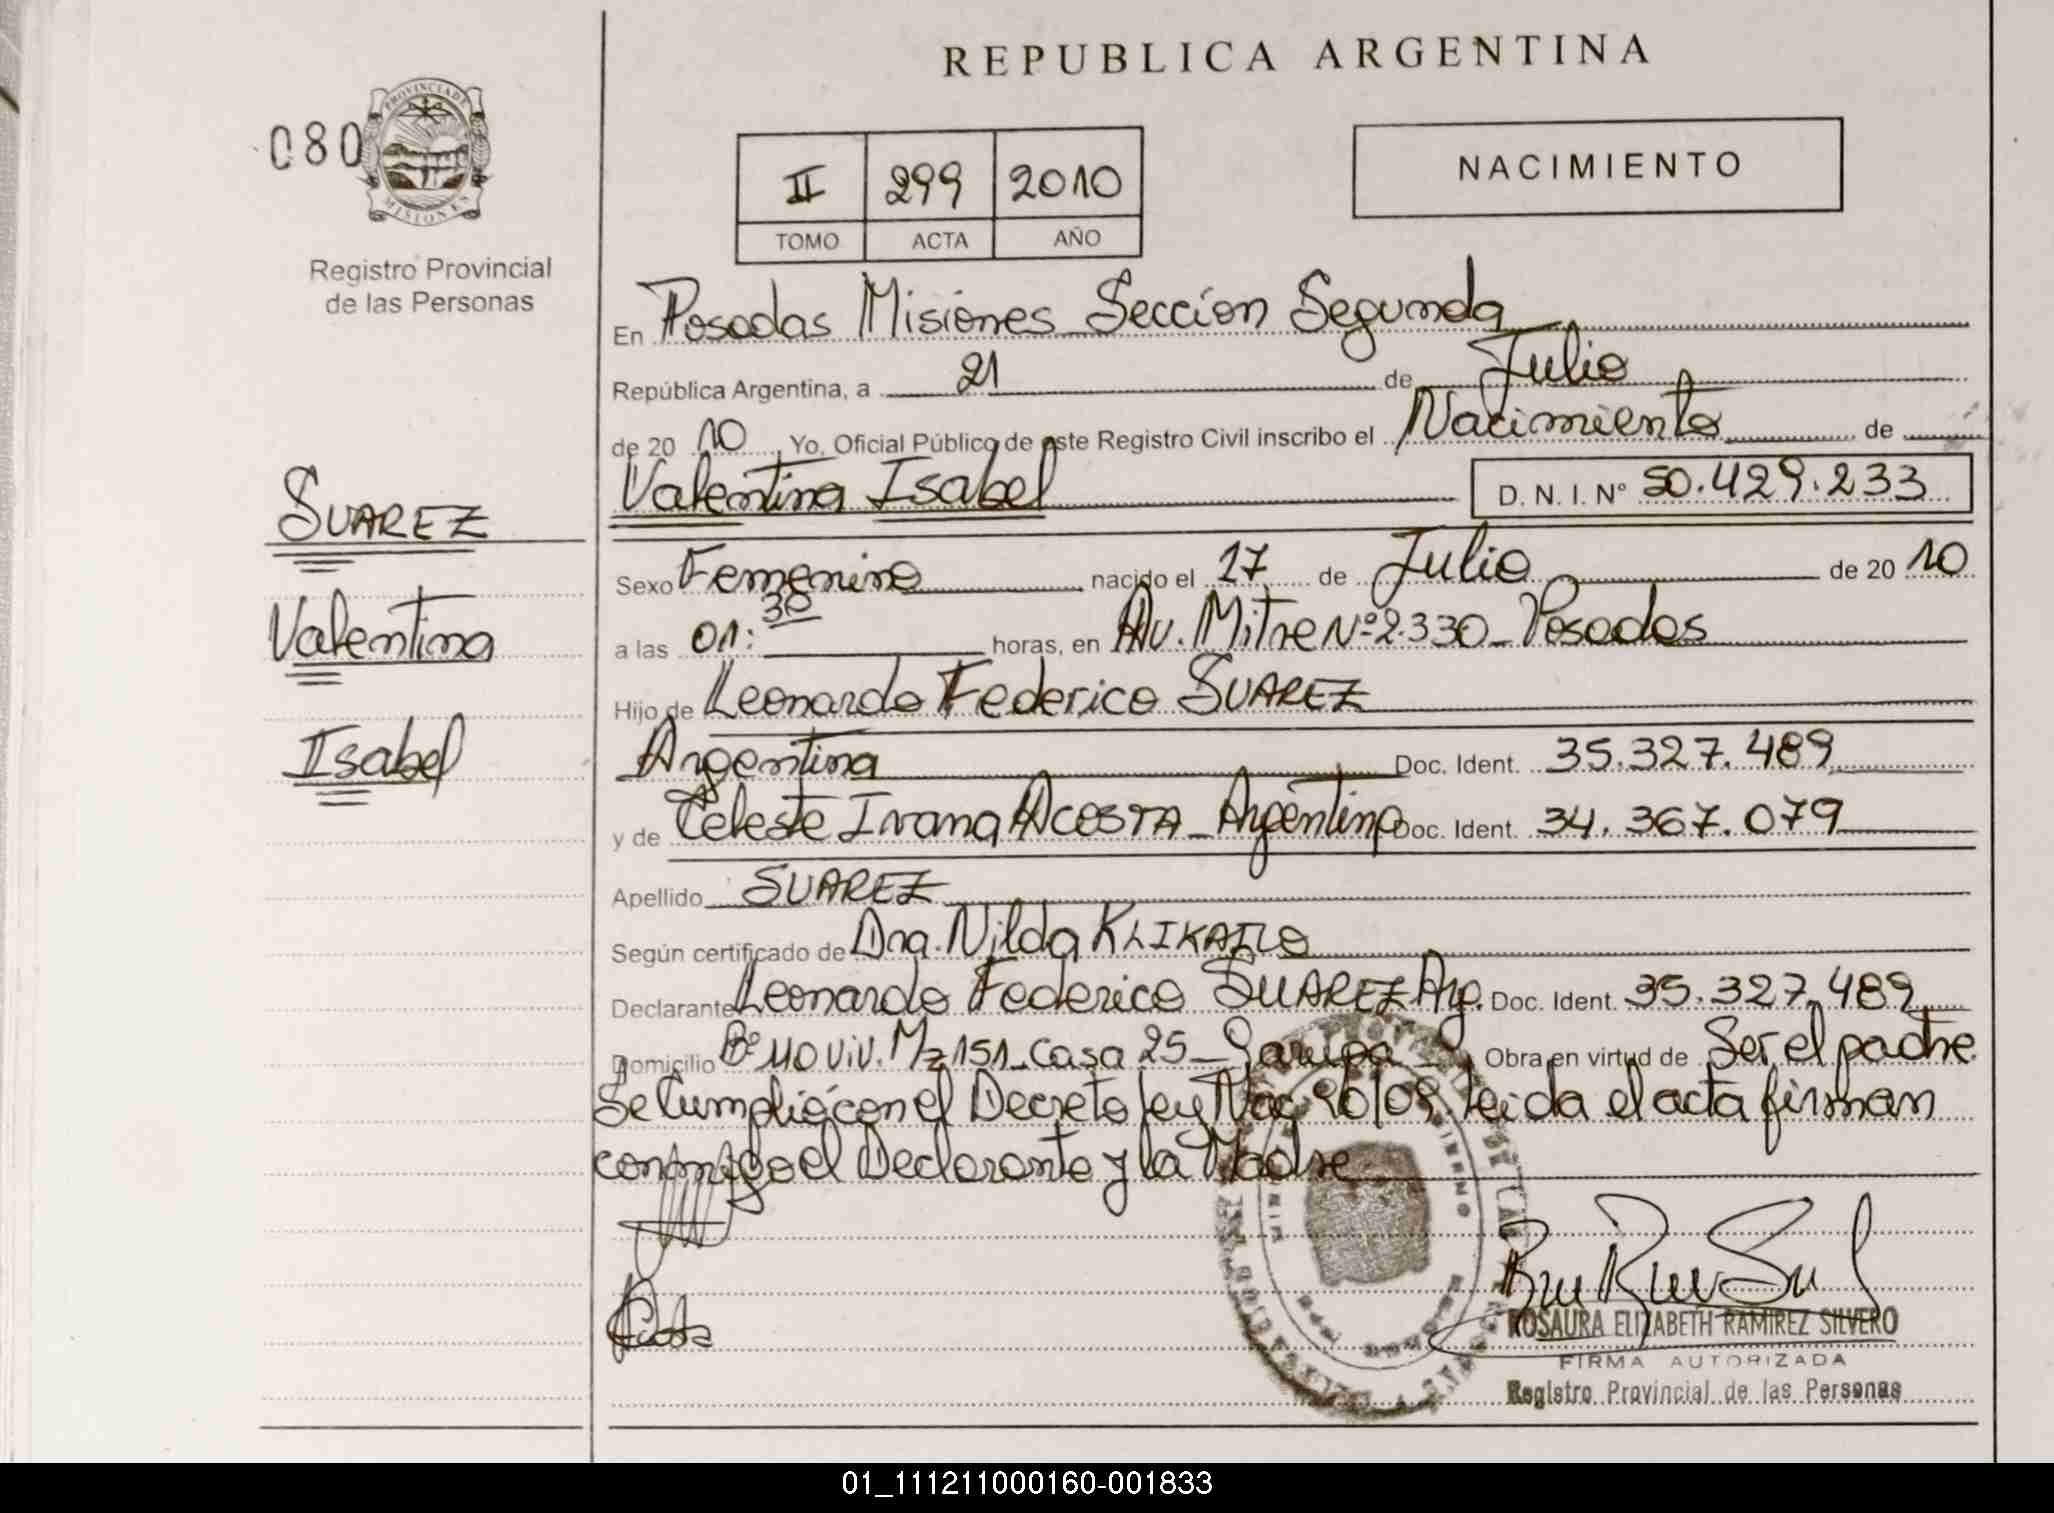 REPUBLICA ARGENTINA
080
PROVINCIA DE
MISIONES
Registro Provincial
de las Personas
II 299 2010
TOMO ACTA AÑO
NACIMIENTO
En Posadas Misiones Sección Segunda
República Argentina, a 21 de Julio
de 20 10 Yo, Oficial Público de este Registro Civil inscribo el Nacimiento de
Valentina Isabel D. N. I. Nº 50.429.233
SUAREZ
Valentina
Isabel
Sexo Femenino nacido el 17 de Julio de 20 10
a las 01:30 horas, en Av. Mitre Nº 2.330_ Posadas
Hijo de Leonardo Federico SUAREZ
Argentina Doc. Ident. 35.327.489
y de Celeste Ivana ACOSTA_ Argentina Doc. Ident. 34.367.079
Apellido SUAREZ
Según certificado de Dra. Nilda
Declarante Leonardo Federico SUAREZ Arg. Doc. Ident. 35.327.489
Domicilio Bº 110 Viv. Mz 151_ Casa 25_ Garupa Obra en virtud de Ser el padre
Se Cumplió con el Decreto ley Nac. 90/09. leida el acta firman
conmigo el Declarante y la Madre
ROSAURA ELIZABETH RAMIREZ SILVERO
FIRMA AUTORIZADA
Registro Provincial de las Personas
01_111211000160-001833